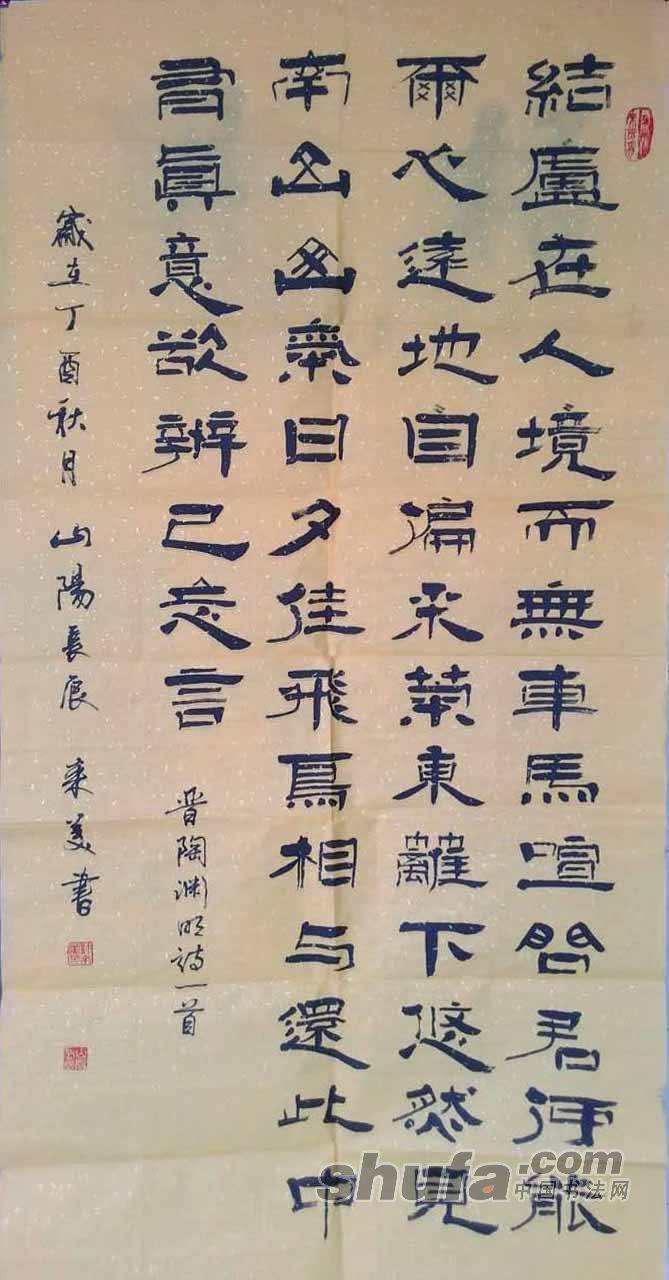 結廬在人境而無車馬喧問君何能
爾心遠地自偏采菊東籬下悠然見
南山山氣日夕佳飛鳥相与還此中
有眞意欲辨已忘言
晋陶渊明詩一首
歲在丁酉秋月 山陽
書
shufa.com
中国书法网